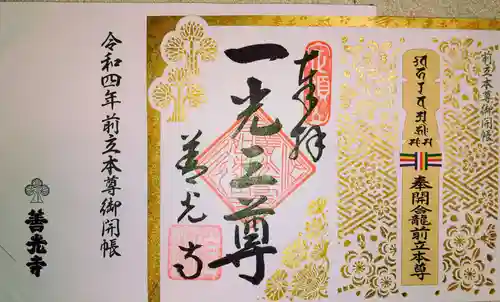 前立本尊御開帳
奉開龕前立本尊
奉拝
一光三尊
善光寺
令和四年前立本尊御開帳
善光寺